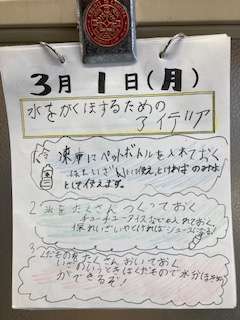 3月1日(月)
水をかくほするための
アイデア
1. 冷凍庫にペットボトルを入れておく
ほれいざいに使え、とければのみ水
として使えます。
2. 氷をたくさんつくっておく
チューチューアイスなどを入れておく
保れいざいやとければジュースになる!
3. くだものをたくさんおいておく
いざというときはくだもので水分ほきゅう
ができるぞ!